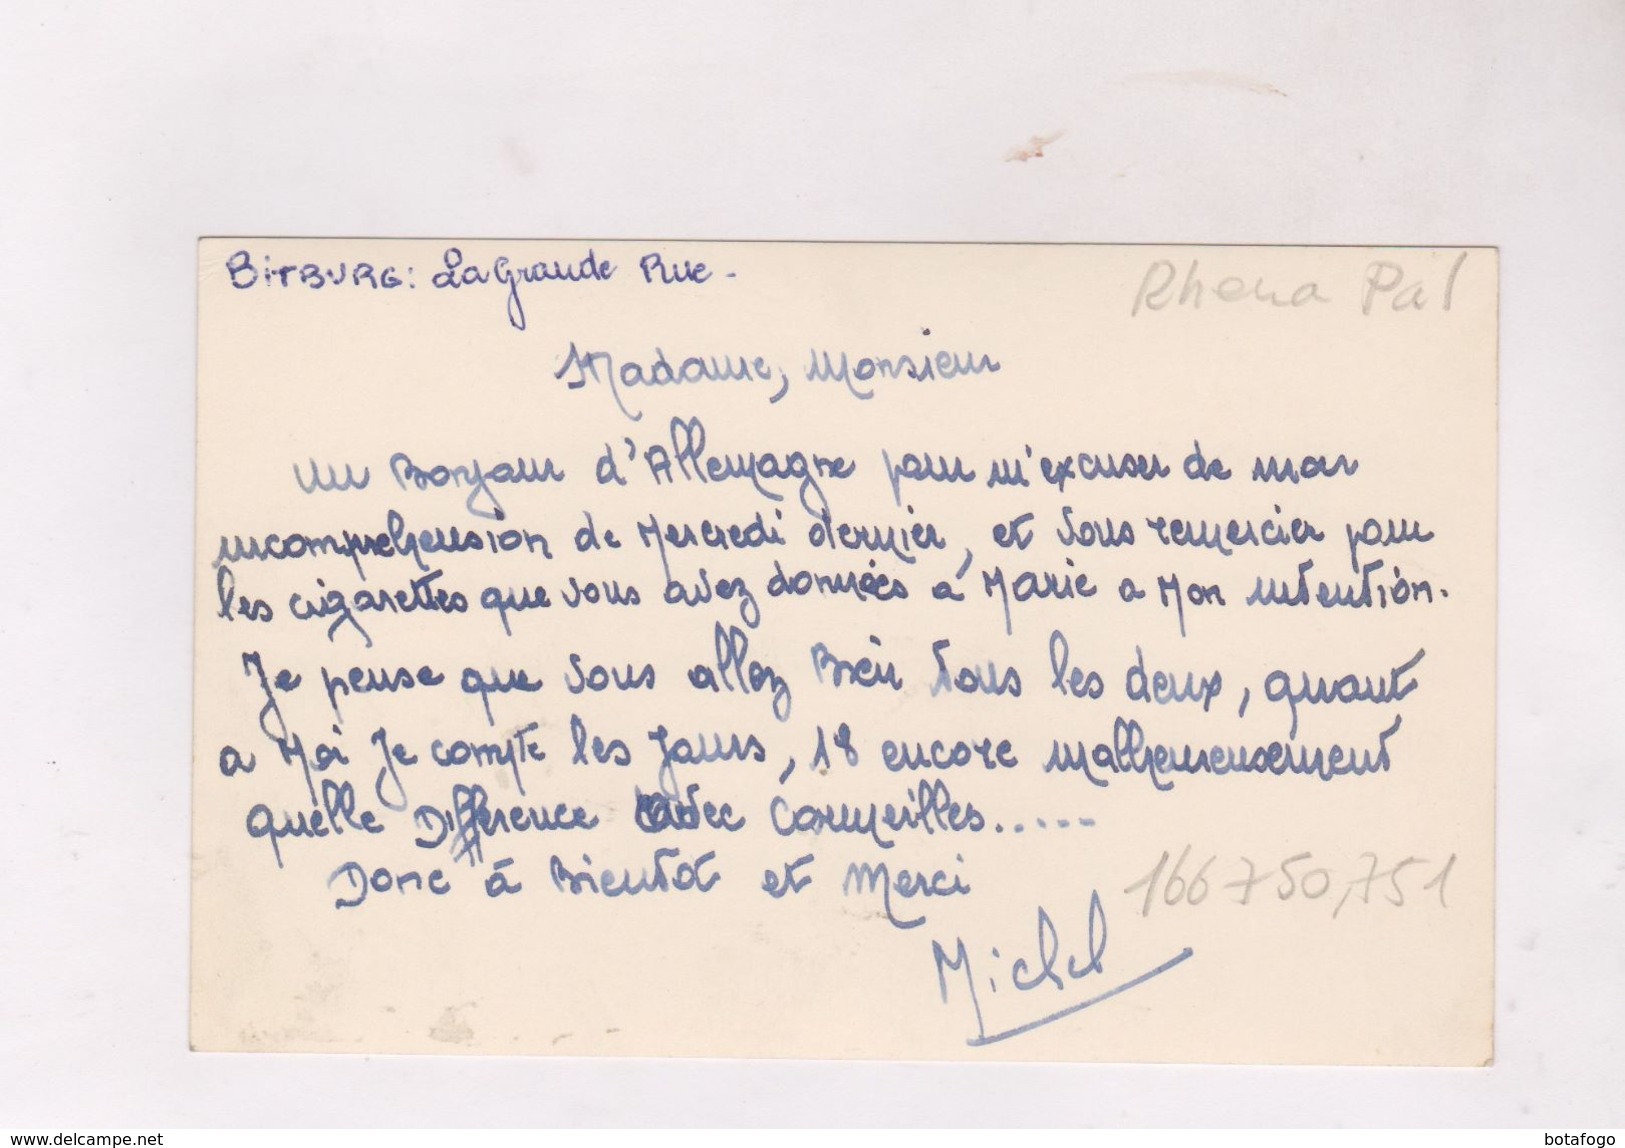 BITBURG: La Grande Rue -
Rhena Pal
Madame, Monsieur
Un Bonjour d'Allemagne pour m'excuser de mon
incomprehension de Mercredi dernier, et vous remercier pour
les cigarettes que vous avez données à Marie a Mon intention.
Je pense que vous allez Bien tous les deux, quant
a Moi Je compte les jours, 18 encore malheureusement
quelle Différence avec Cormeilles.....
Donc à Bientôt et Merci
166 750,751
Michel
www.delcampe.net
botafogo